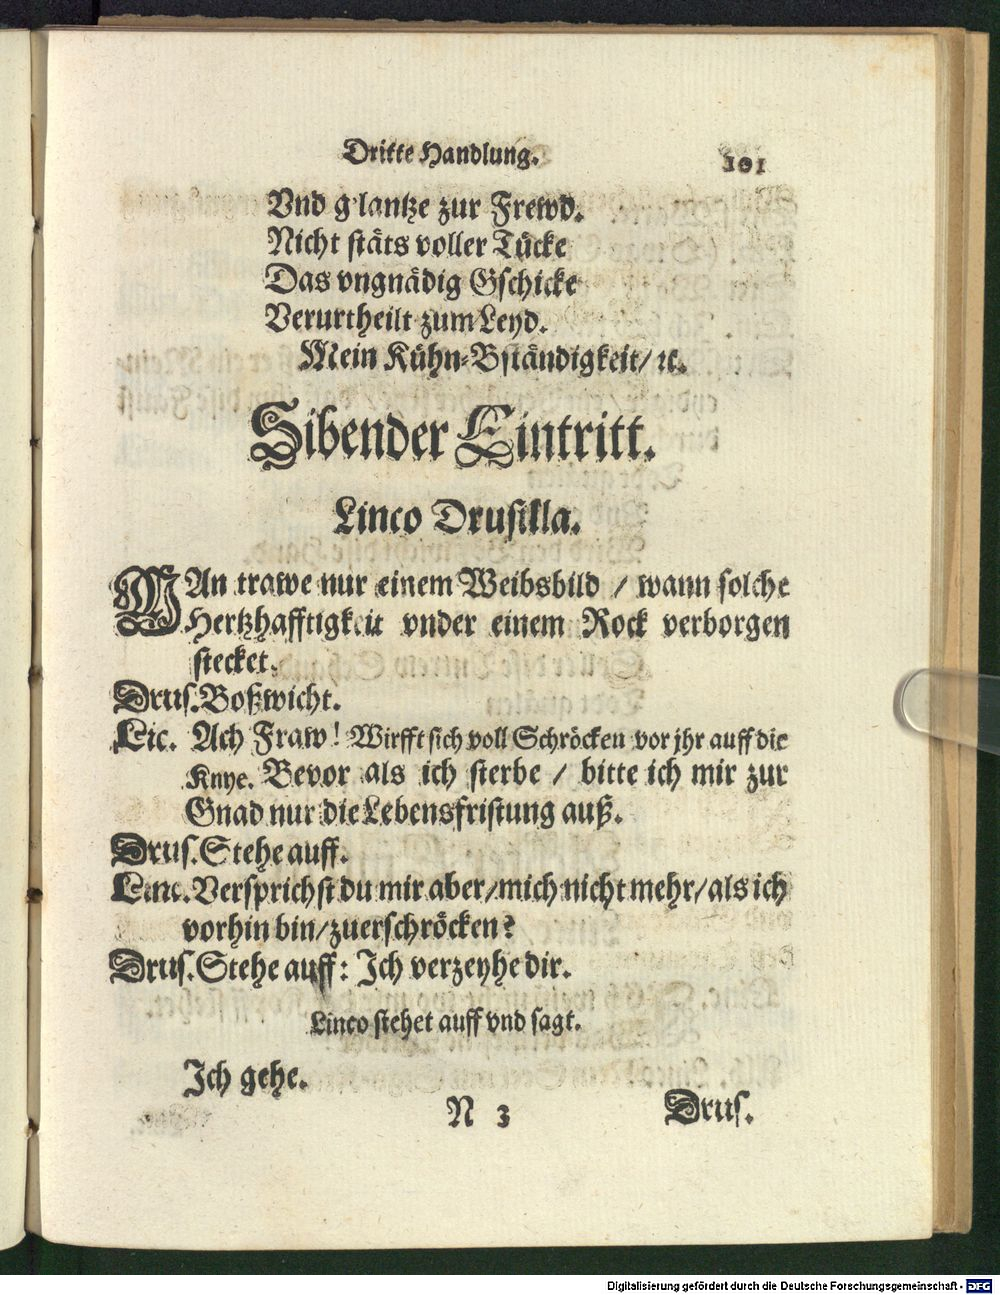 Dritte Handlung. 101
Vnd glantze zur Frewd.
Nicht stäts voller Tücke
Das vngnädig Gschicke
Verurtheilt zum Leyd.
Mein Kühn-Bständigkeit/ ꝛc.
Sibender Eintritt.
Linco Drusilla.
MAn trawe nur einem Weibsbild / wann solche
Hertzhafftigkeit vnder einem Rock verborgen
stecket.
Drus. Boßwicht.
Lic. Ach Fraw! Wirfft sich voll Schröcken vor jhr auff die
Knye. Bevor als ich sterbe / bitte ich mir zur
Gnad nur die Lebensfristung auß.
Drus. Stehe auff.
Linc. Versprichst du mir aber/mich nicht mehr/als ich
vorhin bin/zuerschröcken?
Drus. Stehe auff: Ich verzeyhe dir.
Linco stehet auff vnd sagt.
Ich gehe.
N 3 Drus.
Digitalisierung gefördert durch die Deutsche Forschungsgemeinschaft - DFG